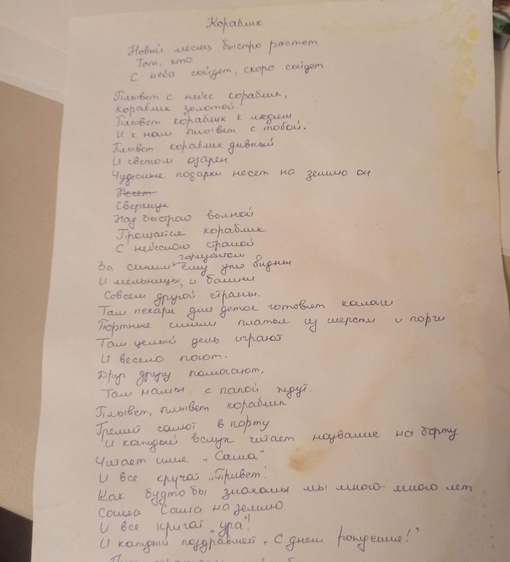 Кораблик
Новый месяц быстро растет
Тот, кто
С неба сойдет, скоро сойдет
Плывет с небес кораблик,
Кораблик золотой
Плывет кораблик к людям
И к нам плывет с тобой.
Плывет кораблик дивный
И светом озарен
Чудесные подарки несет на землю он
Несет
Сверкнув
Над быстрою волной
Прощается кораблик
С небесною страной
горизонтом
За синим ему уже видны
И мельницы, и башни
Совсем другой страны.
Там пекари для деток готовят калачи
Портные сшили платья из шерсти и парчи
Там целый день играют
И весело поют.
Друг другу помогают,
Там мамы с папой ждут.
Плывет, плывет кораблик
Гремит салют в порту
И каждый вслух читает название на борту
Читает имя "Саша"
И все кричат "Привет!
Как будто бы знакомы мы много-много лет
Сошла Саша на землю
И все кричат "ура"!
И каждый поздравляет "С днем рождения!"